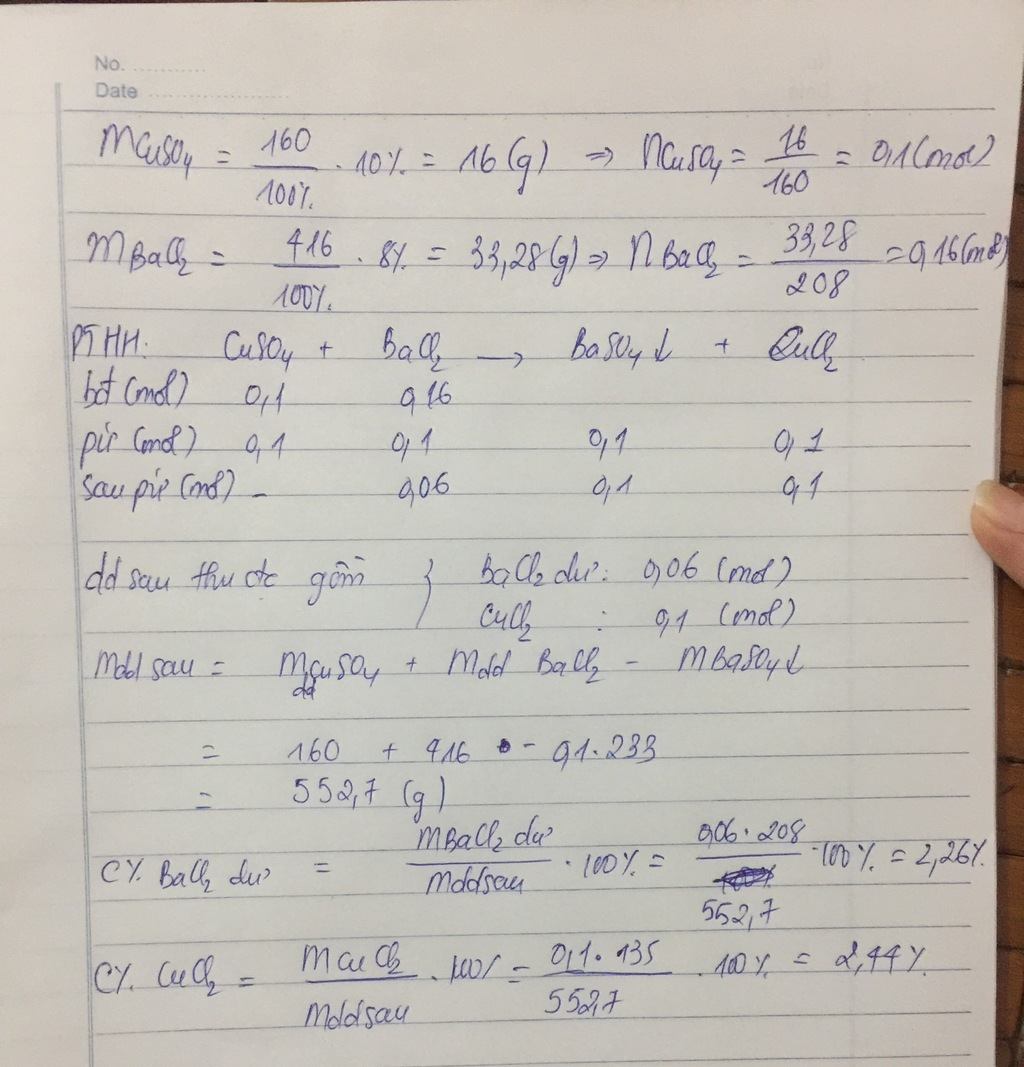 No. ...........
Date .......................
mCuSO4 = 160/100% . 10% = 16 (g) => nCuSO4 = 16/160 = 0,1 (mol)
mBaCl2 = 416/100% . 8% = 33,28 (g) => nBaCl2 = 33,28/208 = 0,16 (mol)
PTHH: CuSO4 + BaCl2 → BaSO4↓ + CuCl2
bđ (mol) 0,1 0,16
pứ (mol) 0,1 0,1 0,1 0,1
sau pứ (mol) - 0,06 0,1 0,1
dd sau thu đc gồm } BaCl2 dư: 0,06 (mol)
CuCl2 : 0,1 (mol)
mdd sau = mdd CuSO4 + mdd BaCl2 - mBaSO4↓
= 160 + 416 - 0,1.233
= 552,7 (g)
C% BaCl2 dư = mBaCl2 dư/mdd sau . 100% = 0,06.208/552,7 . 100% = 2,26%
C% CuCl2 = mCuCl2/mdd sau . 100% = 0,1.135/552,7 . 100% = 2,44%